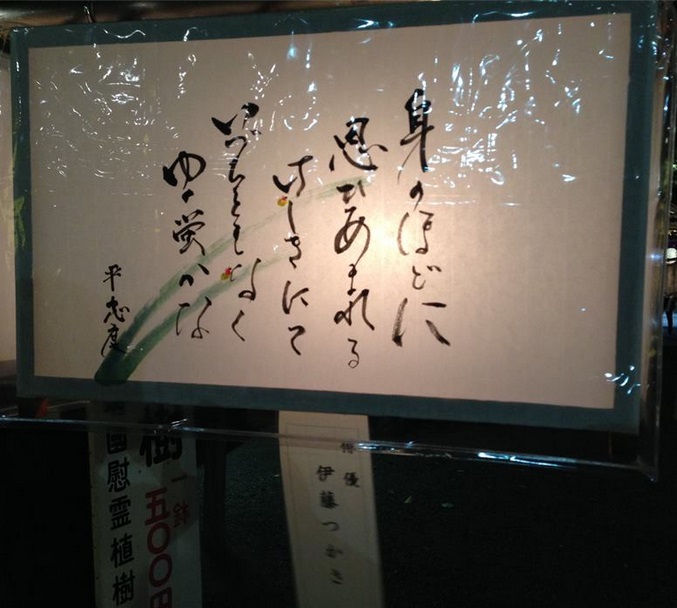 身のほどに
思ひあまれる
けしきにて
いづちともなく
ゆく蛍かな
平忠度
俳優
伊藤つかさ
一鉢
五〇〇円
樹
慰霊植樹